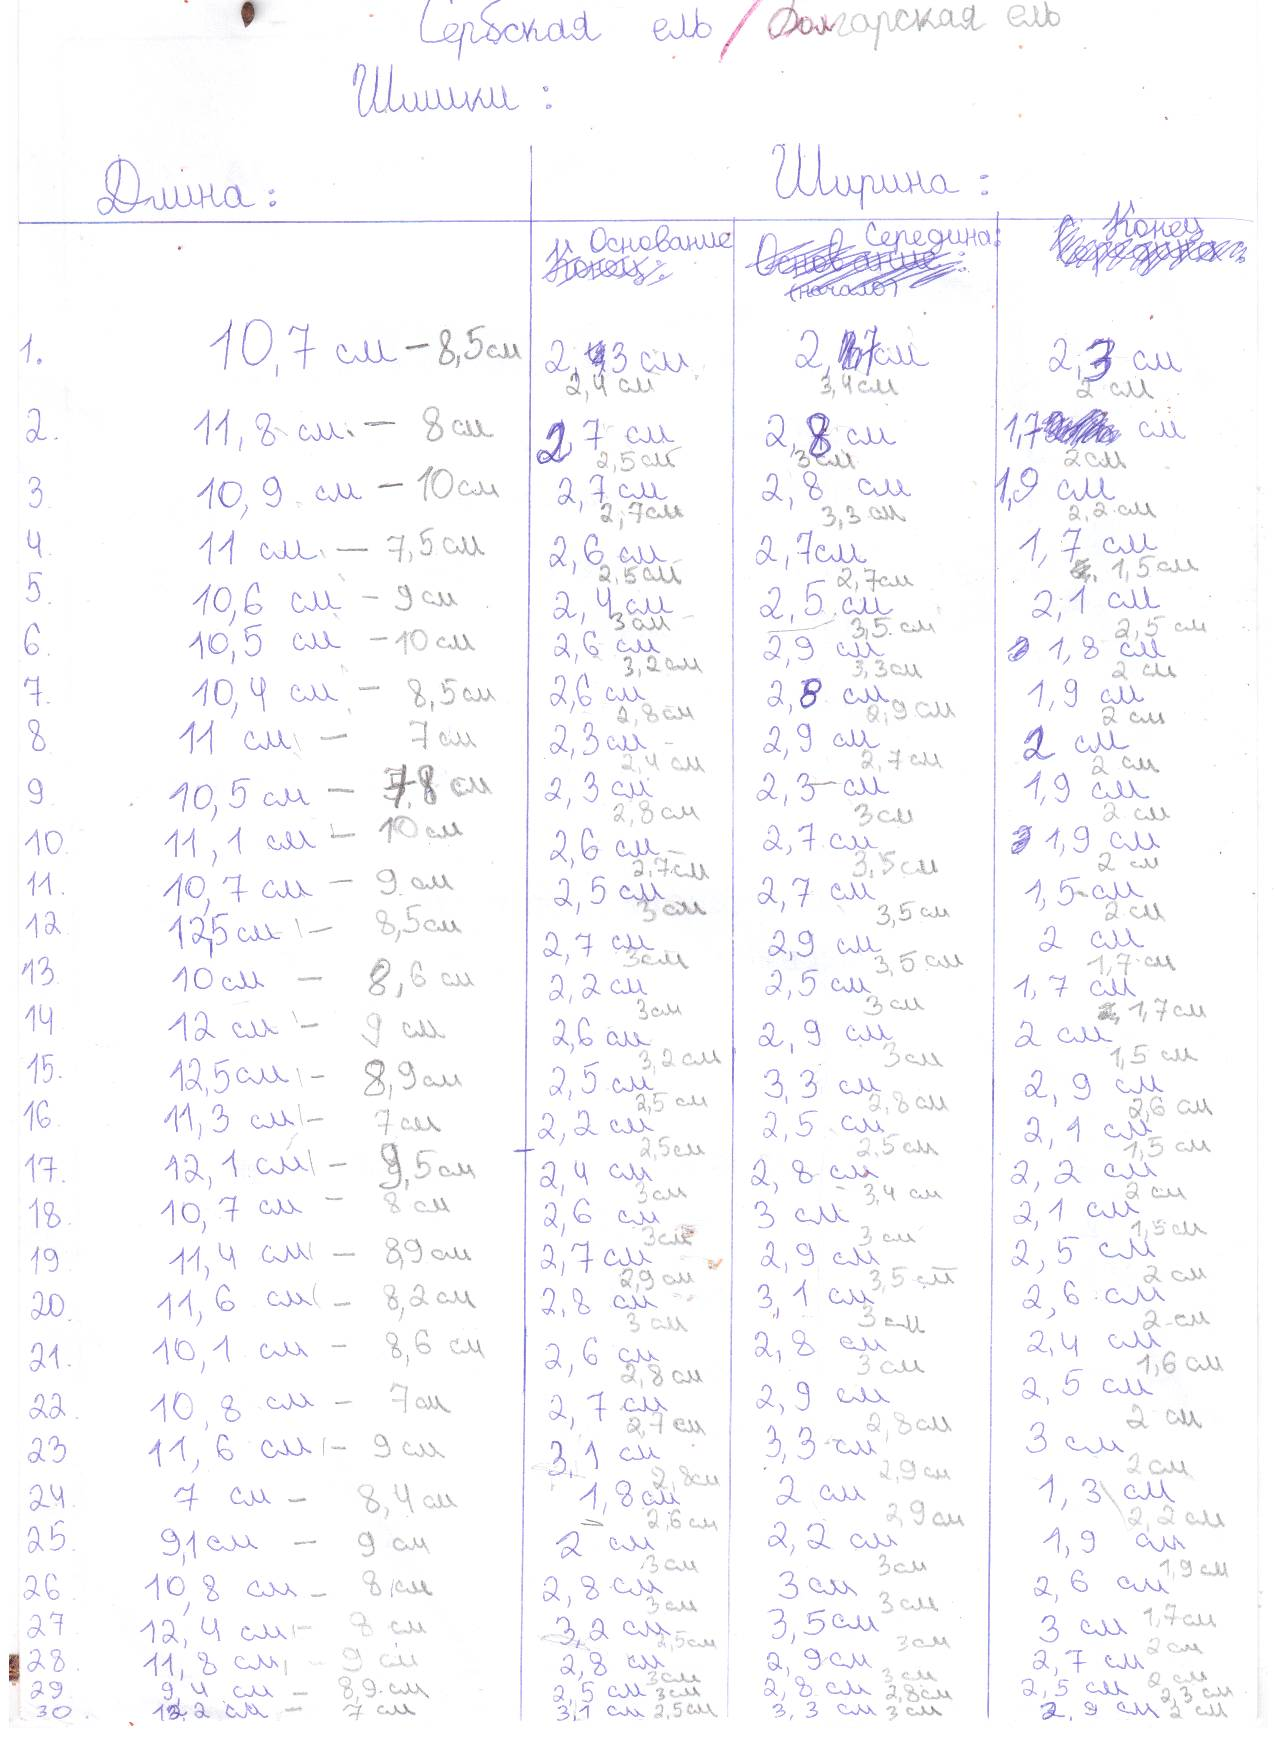 Сербская ель / Болгарская ель
Шишки :
Длина : Ширина :
Основание Середина: Конец
(начало)
1. 10,7 см – 8,5 см 2,3 см 2,7 см 2,3 см
2,4 см 3,4 см 2 см
2. 11,8 см. – 8 см 2,7 см 2,8 см 1,7 см
2,5 см 3 см 2 см
3 10,9 см – 10 см 2,7 см 2,8 см 1,9 см
2,7 см 3,3 см 2,2 см
4 11 см – 7,5 см 2,6 см 2,7 см 1,7 см
2,5 см 2,7 см 1,5 см
5. 10,6 см – 9 см 2,4 см 2,5 см 2,1 см
3 см 3,5 см 2,5 см
6. 10,5 см – 10 см 2,6 см 2,9 см 1,8 см
3,2 см 3,3 см 2 см
7. 10,4 см – 8,5 см 2,6 см 2,8 см 1,9 см
2,8 см 2,9 см 2 см
8 11 см – 7 см 2,3 см 2,9 см 2 см
2,4 см 2,7 см 2 см
9 10,5 см – 7,8 см 2,3 см 2,3 см 1,9 см
2,8 см 3 см 2 см
10. 11,1 см – 10 см 2,6 см 2,7 см 1,9 см
2,7 см 3,5 см 2 см
11. 10,7 см – 9 см 2,5 см 2,7 см 1,5 см
3 см 3,5 см 2 см
12 12,5 см – 8,5 см 2,7 см 2,9 см 2 см
3 см 3,5 см 1,7 см
13. 10 см – 8,6 см 2,2 см 2,5 см 1,7 см
3 см 3 см 1,7 см
14 12 см – 9 см 2,6 см 2,9 см 2 см
3,2 см 3 см 1,5 см
15. 12,5 см – 8,9 см 2,5 см 3,3 см 2,9 см
2,5 см 2,8 см 2,6 см
16. 11,3 см – 7 см 2,2 см 2,5 см 2,1 см
2,5 см 2,5 см 1,5 см
17. 12,1 см – 9,5 см 2,4 см 2,8 см 2,2 см
3 см 3,4 см 2 см
18. 10,7 см – 8 см 2,6 см 3 см 2,1 см
3 см 3 см 1,5 см
19 11,4 см – 8,9 см 2,7 см 2,9 см 2,5 см
2,9 см 3,5 см 2 см
20. 11,6 см – 8,2 см 2,8 см 3,1 см 2,6 см
3 см 3 см 2 см
21. 10,1 см – 8,6 см 2,6 см 2,8 см 2,4 см
2,8 см 3 см 1,6 см
22. 10,8 см – 7 см 2,7 см 2,9 см 2,5 см
2,7 см 2,8 см 2 см
23 11,6 см – 9 см 3,1 см 3,3 см 3 см
2,8 см 2,9 см 2 см
24. 7 см – 8,4 см 1,8 см 2 см 1,3 см
2,6 см 2,9 см 2,2 см
25. 9,1 см – 9 см 2 см 2,2 см 1,9 см
3 см 3 см 1,9 см
26 10,8 см – 8 см 2,8 см 3 см 2,6 см
3 см 3 см 1,7 см
27 12,4 см – 8 см 3,2 см 3,5 см 3 см
2,5 см 3 см 2 см
28. 11,8 см – 9 см 2,8 см 2,9 см 2,7 см
3 см 3 см 2 см
29. 9,4 см – 8,9 см 2,5 см 3 см 2,8 см 2,8 см 2,5 см 2,3 см
30. 12,2 см – 7 см 3,1 см 2,5 см 3,3 см 3 см 2,9 см 2 см